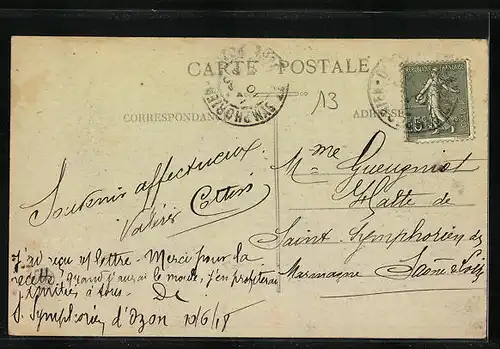 CARTE POSTALE
13
CORRESPONDANCE
ADRESSE
RÉPUBLIQUE FRANÇAISE
15c
SYMPHORIEN
Mme Gueugniot
Halte de
Saint Symphorien de
Marmagne Saône & Loire
Souvenir affectueux
Valérie
J'ai reçu v/ lettre - Merci pour la
recette, quand j'aurai le moule, j'en profiterai
Amitiés à tous
St Symphorien d'Ozon 10/6/18